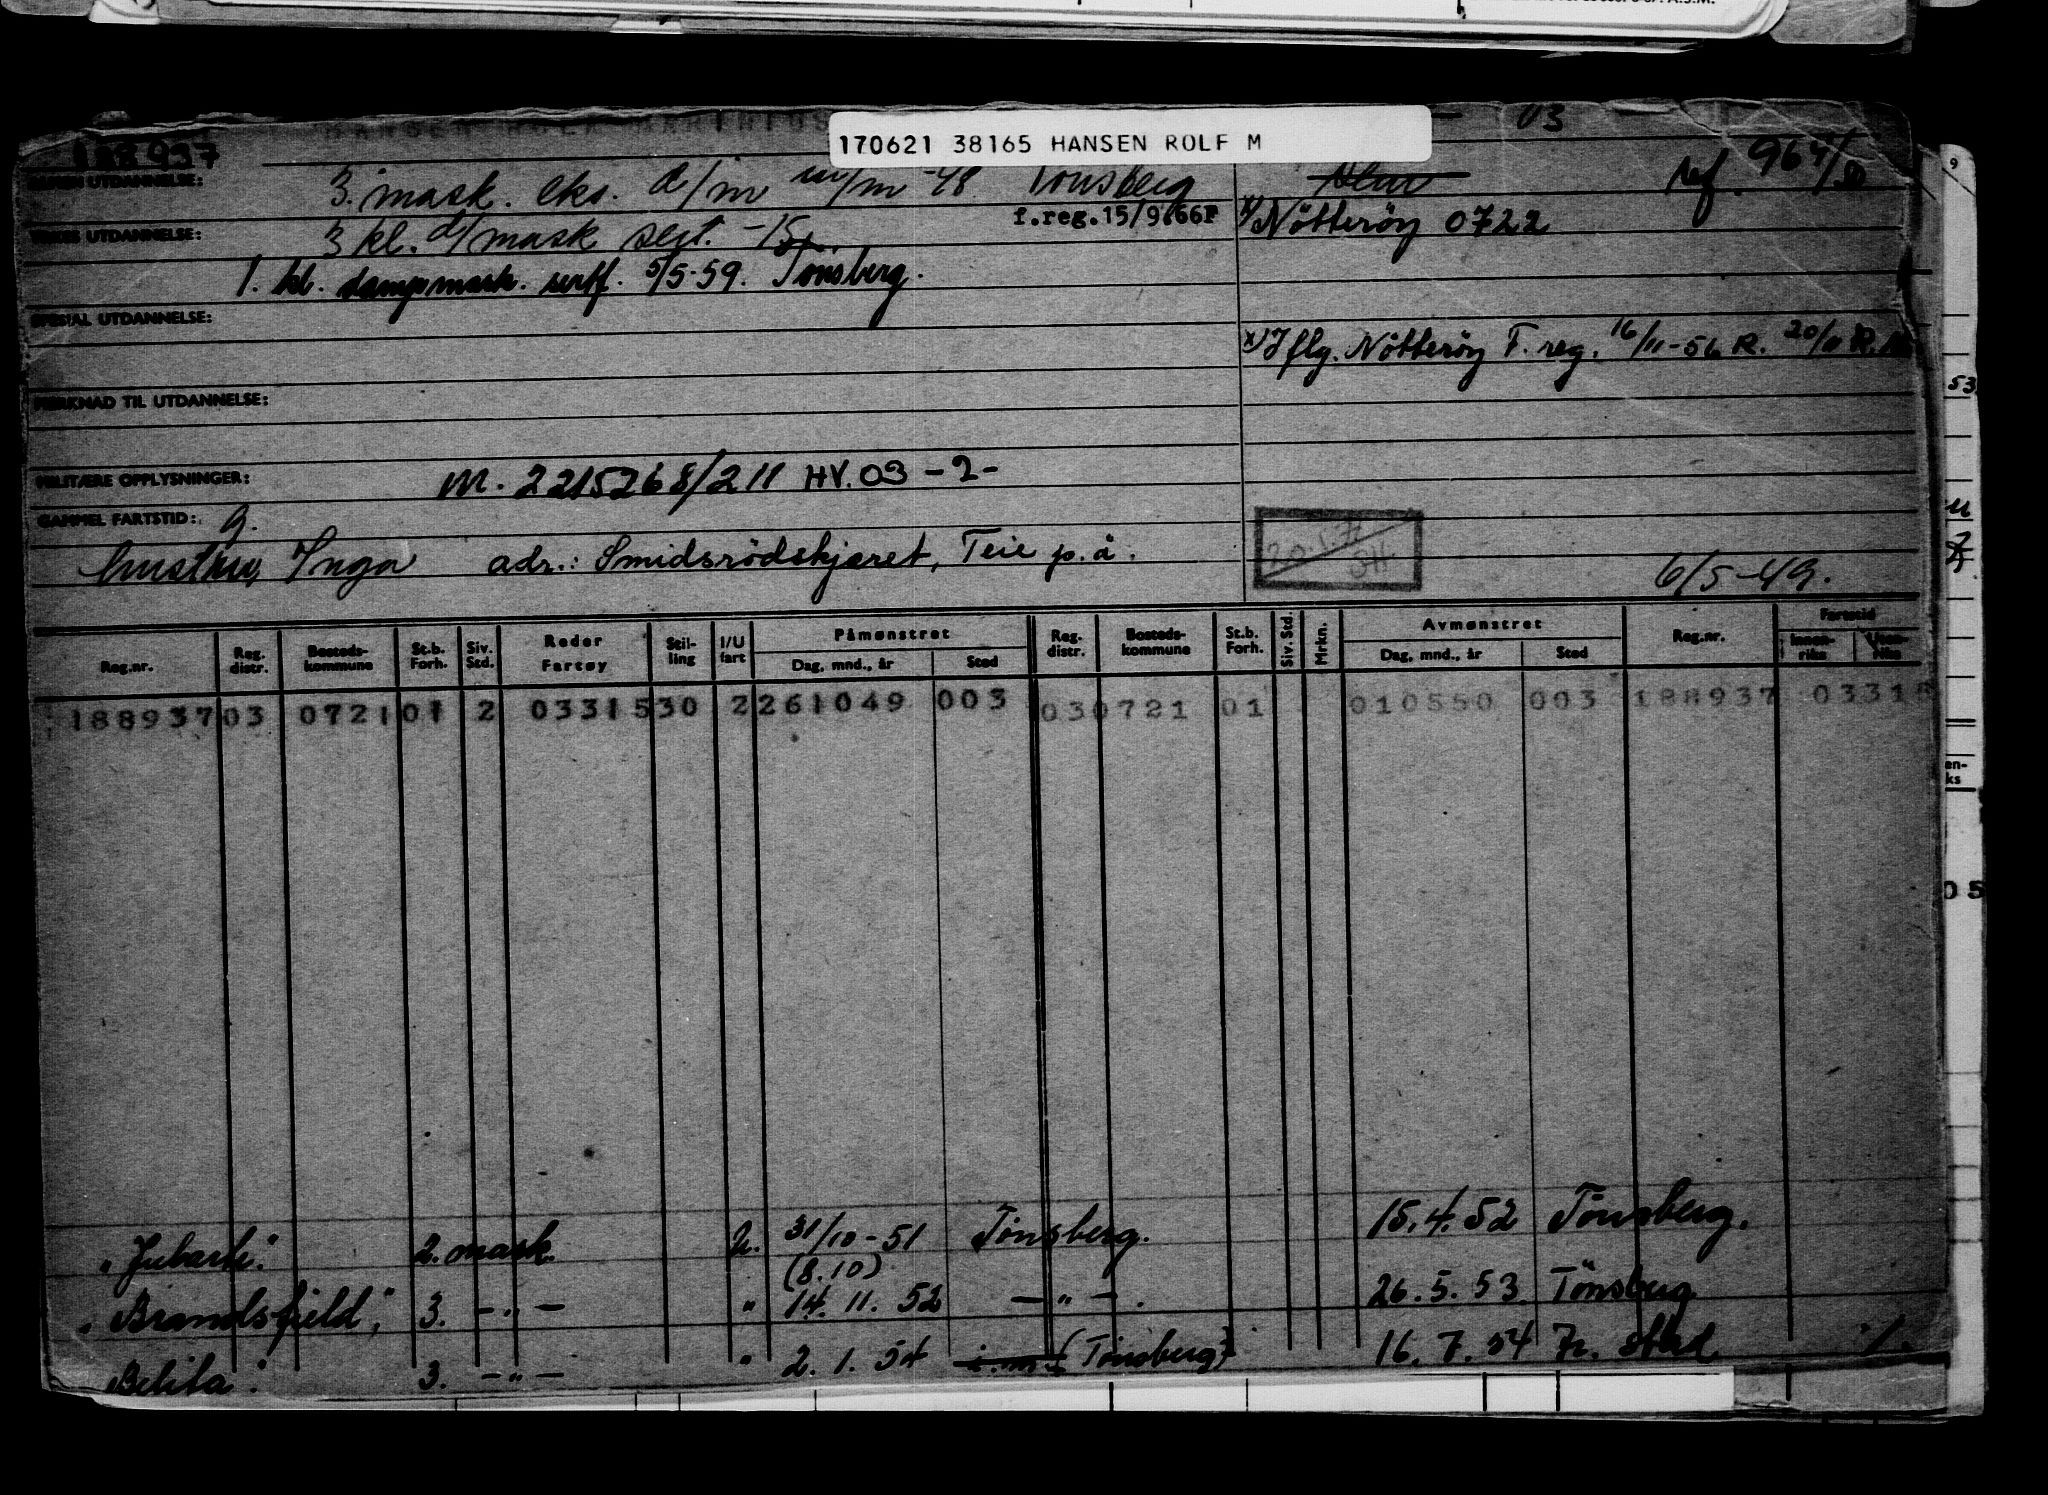 170621 38165 HANSEN ROLF M
03
188937
UTDANNELSE: 3. mask. eks. d/m m/m -48 Tönsberg
Ref. 964/50
UTDANNELSE: 3 kl. d/mask sert.
f.reg.15/9.66F
x) Nötteröy 0722
1. kl. dampmask. sertf. 5/5-59. Tönsberg.
SPESIAL UTDANNELSE:
x) Iflg. Nötteröy F. reg. 16/11-56 R. 20/11
MERKNAD TIL UTDANNELSE:
MILITÆRE OPPLYSNINGER: M. 2215268/211 HV. 03 -2-
GAMMEL FARTSTID: g.
hustru, Inga adr.: Smidsrödskjæret, Teie p.å.
6/5-49.
Reg.nr. Reg. distr. Bosteds-kommune St.b. Forh. Siv. Std. Reder Fartøy Stil-ling I/U fart Påmønstret Dag, mnd., år Sted Reg. distr. Bosteds-kommune St.b. Forh. Siv. Std. Mrkn. Avmønstret Dag, mnd., år Sted Reg.nr. Fartstid Innen-riks Uten-riks
188937 03 0721 01 2 03315 30 2 261049 003 03 0721 01 010550 003 188937 0331
"Jubark". 2. mask. U. 31/10-51 Tönsberg. 15.4.52 Tönsberg.
(8.10)
"Brandsfjeld", 3. -"- " 14.11.52 -"-. 26.5.53 Tönsberg
Belita". 3. -"- " 2.1.54 (Tönsberg) 16.7.54 Fr. stad
53
en-
ks
05